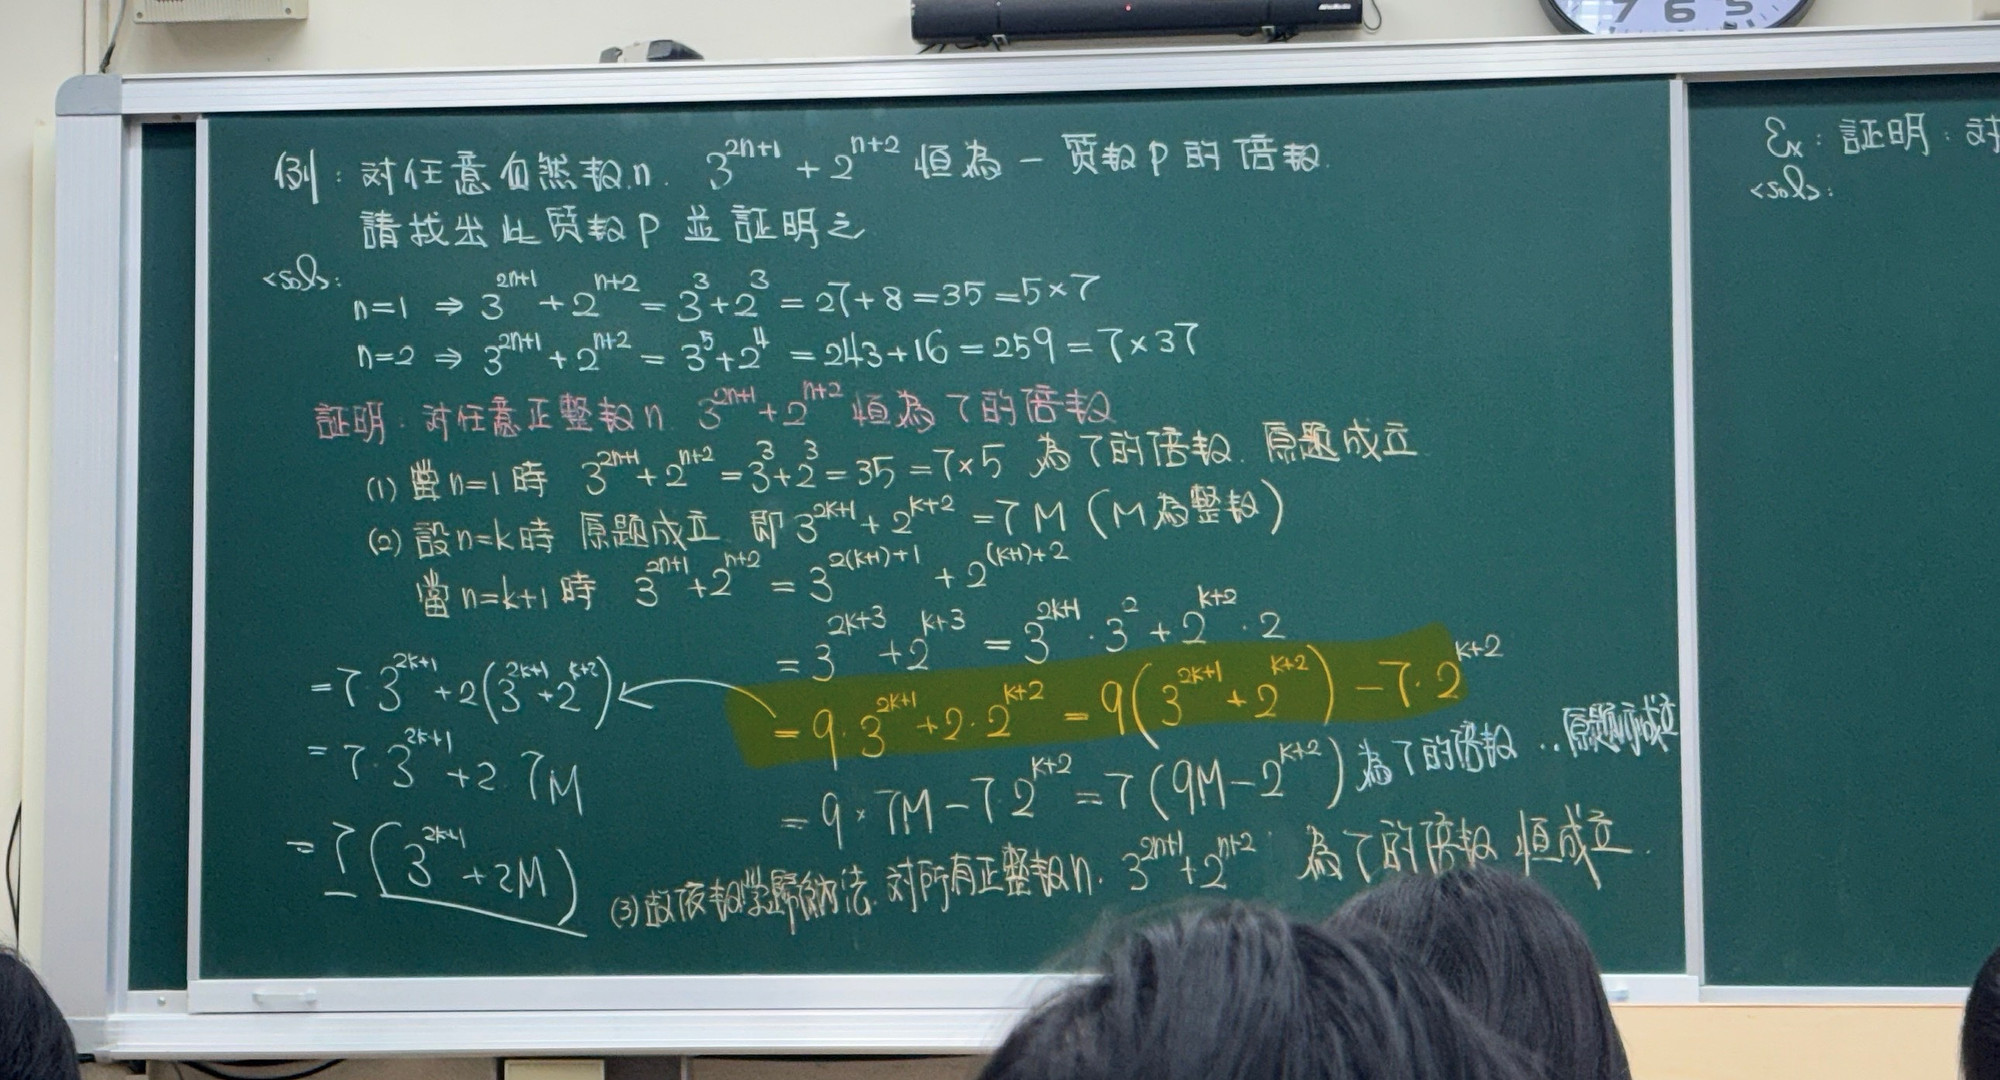 例：対任意自然数n. 3^{2n+1}+2^{n+2} 恒為一质数P的倍数.
請找出此质数P 並証明之
<sol>:
n=1 ⇒ 3^{2n+1}+2^{n+2} = 3^3+2^3 = 27+8 = 35 = 5×7
n=2 ⇒ 3^{2n+1}+2^{n+2} = 3^5+2^4 = 243+16 = 259 = 7×37
証明：対任意正整数n 3^{2n+1}+2^{n+2} 恒為7的倍数
(1) 當n=1時 3^{2n+1}+2^{n+2} = 3^3+2^3 = 35 = 7×5 為7的倍数. 原題成立
(2) 設n=k時 原題成立 即 3^{2k+1}+2^{k+2} = 7M (M為整数)
當n=k+1時 3^{2n+1}+2^{n+2} = 3^{2(k+1)+1} + 2^{(k+1)+2}
= 3^{2k+3}+2^{k+3} = 3^{2k+1}·3^2+2^{k+2}·2
= 9·3^{2k+1}+2·2^{k+2} = 9(3^{2k+1}+2^{k+2}) - 7·2^{k+2}
= 9×7M - 7·2^{k+2} = 7(9M-2^{k+2}) 為7的倍数 ∴原題亦成立
= 7·3^{2k+1}+2(3^{2k+1}+2^{k+2})
= 7·3^{2k+1}+2·7M
= 7(3^{2k+1}+2M)
(3) 故依数学歸納法. 対所有正整数n. 3^{2n+1}+2^{n+2} 為7的倍数 恒成立.
Ex：証明：対
<sol>:
7 6 5